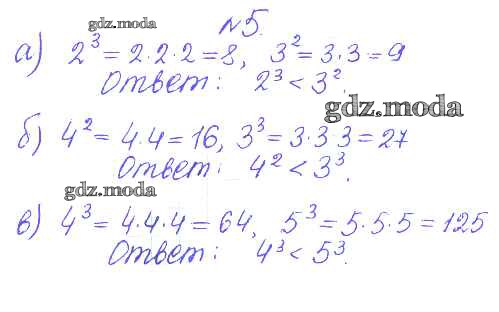 gdz.moda
№5.
а) 2³ = 2·2·2 = 8, 3² = 3·3 = 9
Ответ: 2³ < 3².
gdz.moda
б) 4² = 4·4 = 16, 3³ = 3·3 3 = 27
Ответ: 4² < 3³.
gdz.moda
в) 4³ = 4·4·4 = 64, 5³ = 5·5·5 = 125
Ответ: 4³ < 5³.